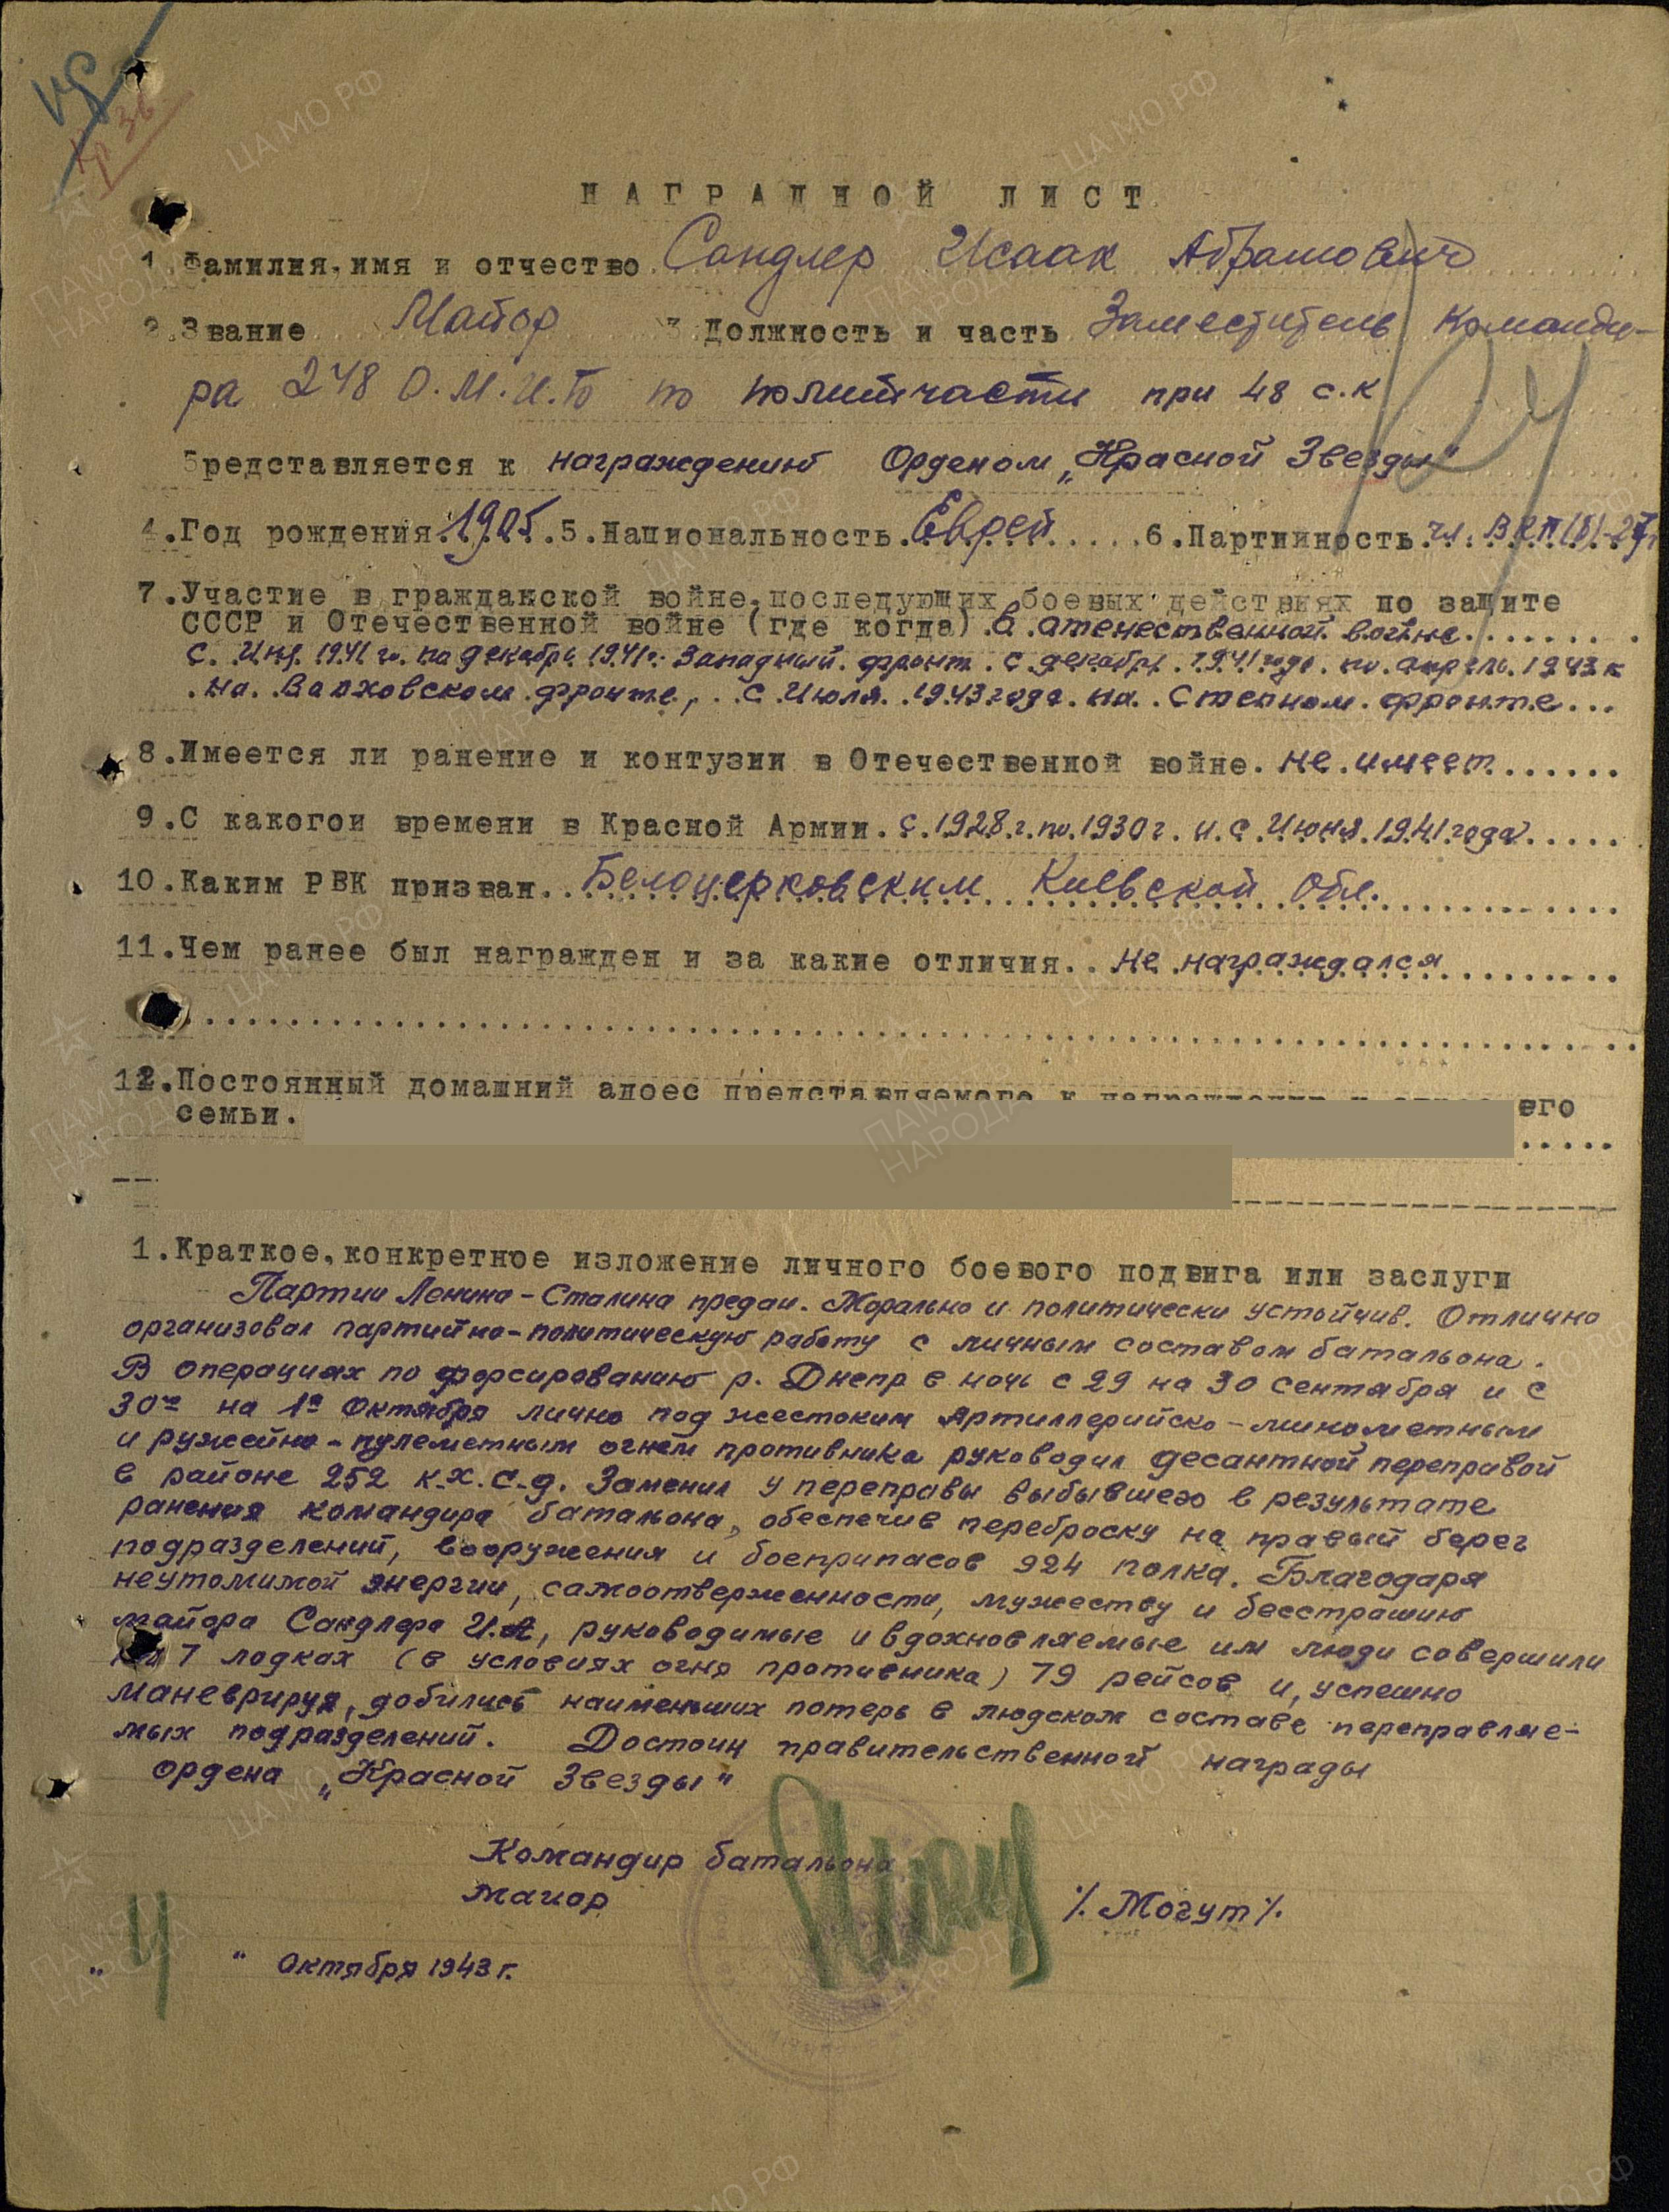 НАГРАДНОЙ ЛИСТ
1.Фамилия,имя и отчество Сандлер Исаак Абрамович
2.Звание Майор 3.Должность и часть Заместитель Команди-
ра 248 О.М.И.Б по политчасти при 48 с.к
Представляется к награждению Орденом „Красной Звезды"
4.Год рождения.1905.5.Национальность.Еврей.....6.Партийность.чл. ВКП(б)-27г
7.Участие в гражданской войне,последующих боевых действиях по защите
СССР и Отечественной войне (где когда).В отечественной войне.......
С. Июня 1941 г. по декабрь 1941г. Западный фронт. с декабря 1941 года. по апрель 1943 г
на Волховском фронте, с Июля 1943 года на Степном фронте...
8.Имеется ли ранение и контузии в Отечественной войне. не имеет......
9.С какогои времени в Красной Армии. с 1928 г. по 1930 г. и с Июня 1941 года.....
10.Каким РВК призван..Белоцерковским Киевской Обл.
11.Чем ранее был награжден и за какие отличия..не награждался
12.Постоянный домашний адрес представляемого к награждению и его
семьи.
1.Краткое,конкретное изложение личного боевого подвига или заслуги
Партии Ленина-Сталина предан. Морально и политически устойчив. Отлично
организовал партийно-политическую работу с личным составом батальона.
В операциях по форсированию р. Днепр в ночь с 29 на 30 сентября и с
30го на 1е Октября лично под жестоким Артиллерийско-минометным
и ружейно-пулеметным огнем противника руководил десантной переправой
в районе 252 к.х.с.д. Заменил у переправы выбывшего в результате
ранения командира батальона, обеспечив переброску на правый берег
подразделений, вооружения и боеприпасов 924 полка. Благодаря
неутомимой энергии, самоотверженности, мужеству и бесстрашию
майора Сандлера И.А, руководимые и вдохновляемые им люди совершили
на 7 лодках (в условиях огня противника) 79 рейсов и, успешно
маневрируя, добились наименьших потерь в людском составе переправляе-
мых подразделений. Достоин правительственной награды
ордена „Красной Звезды"
Командир батальона
Майор ⁒ Могут ⁒
" 4 " Октября 1943 г.